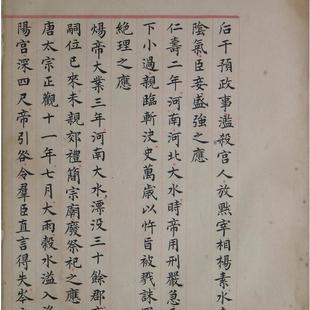 后干預政事濫殺宮人放黜宰相楊素水
陰氣臣妾盛強之應
仁壽二年河南河北大水時帝用刑嚴急
下小過親臨斬決史萬歲以忤旨被戮誅
絕理之應
煬帝大業三年河南大水漂没三十餘郡
嗣位已來未親郊禮簡宗廟廢祭祀之應
唐太宗正觀十一年七月大雨穀水溢入
陽宮深四尺帝引咎令羣臣直言得失岑